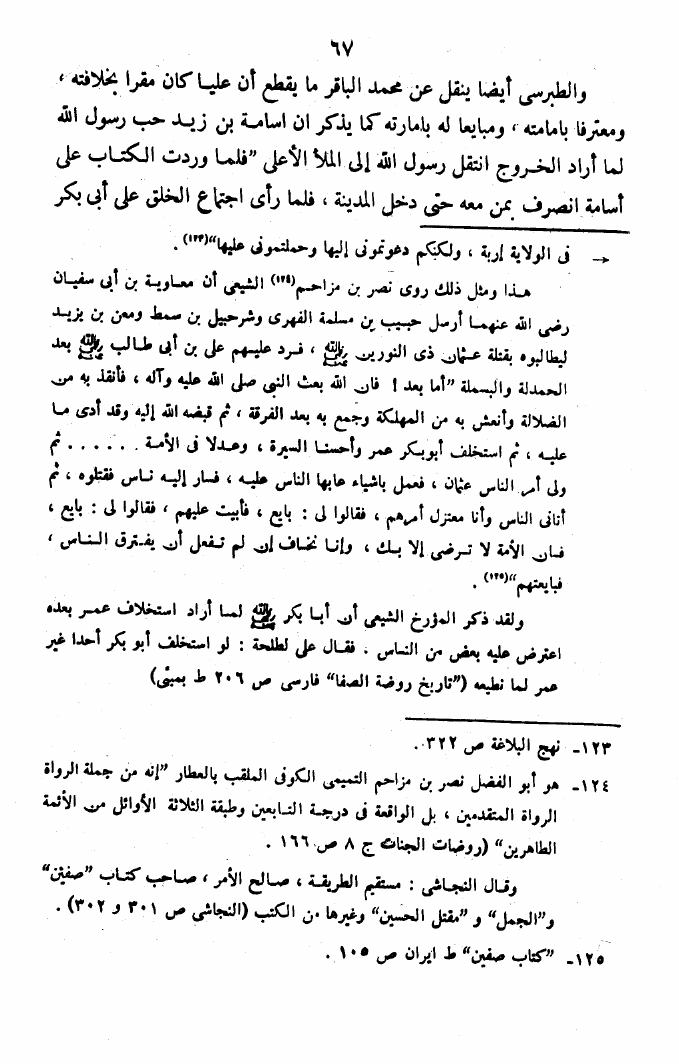 ٦٧
والطبرسى أيضا ينقل عن محمد الباقر ما يقطع أن عليا كان مقرا بخلافته ،
ومعترفا بامامته ، ومبايعا له بامارته كما يذكر ان اسامة بن زيد حب رسول الله
لما أراد الخروج انتقل رسول الله إلى الملأ الأعلى “فلما وردت الكتاب على
أسامة انصرف بمن معه حتى دخل المدينة ، فلما رأى اجتماع الخلق على أبى بكر
→ فى الولاية إربة ، ولكنكم دعوتمونى إليها وحملتمونى عليها“(١٢٣) .
هذا ومثل ذلك روى نصر بن مزاحم(١٢٤) الشيعى أن معاوية بن أبى سفيان
رضى الله عنهما أرسل حبيب بن مسلمة الفهرى وشرحبيل بن سمط ومعن بن يزيد
ليطالبوه بقتلة عثمان ذى النورين رضي الله عنه ، فرد عليهم على بن أبى طالب رضي الله عنه بعد
الحمدلة والبسملة “أما بعد ! فان الله بعث النبى صلى الله عليه وآله ، فأنقذ به من
الضلالة وأنعش به من المهلكة وجمع به بعد الفرقة ، ثم قبضه الله إليه وقد أدى ما
عليه ، ثم استخلف أبوبكر عمر وأحسنا السيرة ، وعدلا فى الأمة . . . . . . ثم
ولى أمر الناس عثمان ، فعمل باشياء عابها الناس عليه ، فسار إليه ناس فقتلوه ، ثم
أتانى الناس وأنا معتزل أمرهم ، فقالوا لى : بايع ، فأبيت عليهم ، فقالوا لى : بايع ،
فان الأمة لا ترضى إلا بك ، وإنا نخاف إن لم تفعل أن يفترق الناس ،
فبايعتهم“(١٢٥) .
ولقد ذكر المؤرخ الشيعى أن أبا بكر رضي الله عنه لما أراد استخلاف عمر بعده
اعترض عليه بعض من الناس . فقال على لطلحة : لو استخلف أبو بكر أحدا غير
عمر لما نطيعه (“تاريخ روضة الصفا“ فارسى ص ٢٠٦ ط بمبئى)
١٢٣ـ نهج البلاغة ص ٣٢٢ .
١٢٤ـ هو أبو الفضل نصر بن مزاحم التميمى الكوفى الملقب بالعطار “إنه من جملة الرواة
الرواة المتقدمين ، بل الواقعة فى درجة التابعين وطبقة الثلاثة الأوائل من الأئمة
الطاهرين“ (روضات الجنات ج ٨ ص ١٦٦ .
وقال النجاشى : مستقيم الطريقة ، صالح الأمر ، صاحب كتاب “صفين“
و“الجمل“ و “مقتل الحسين“ وغيرها من الكتب (النجاشى ص ٣٠١ و ٣٠٢) .
١٢٥ـ “كتاب صفين“ ط ايران ص ١٠٥ .